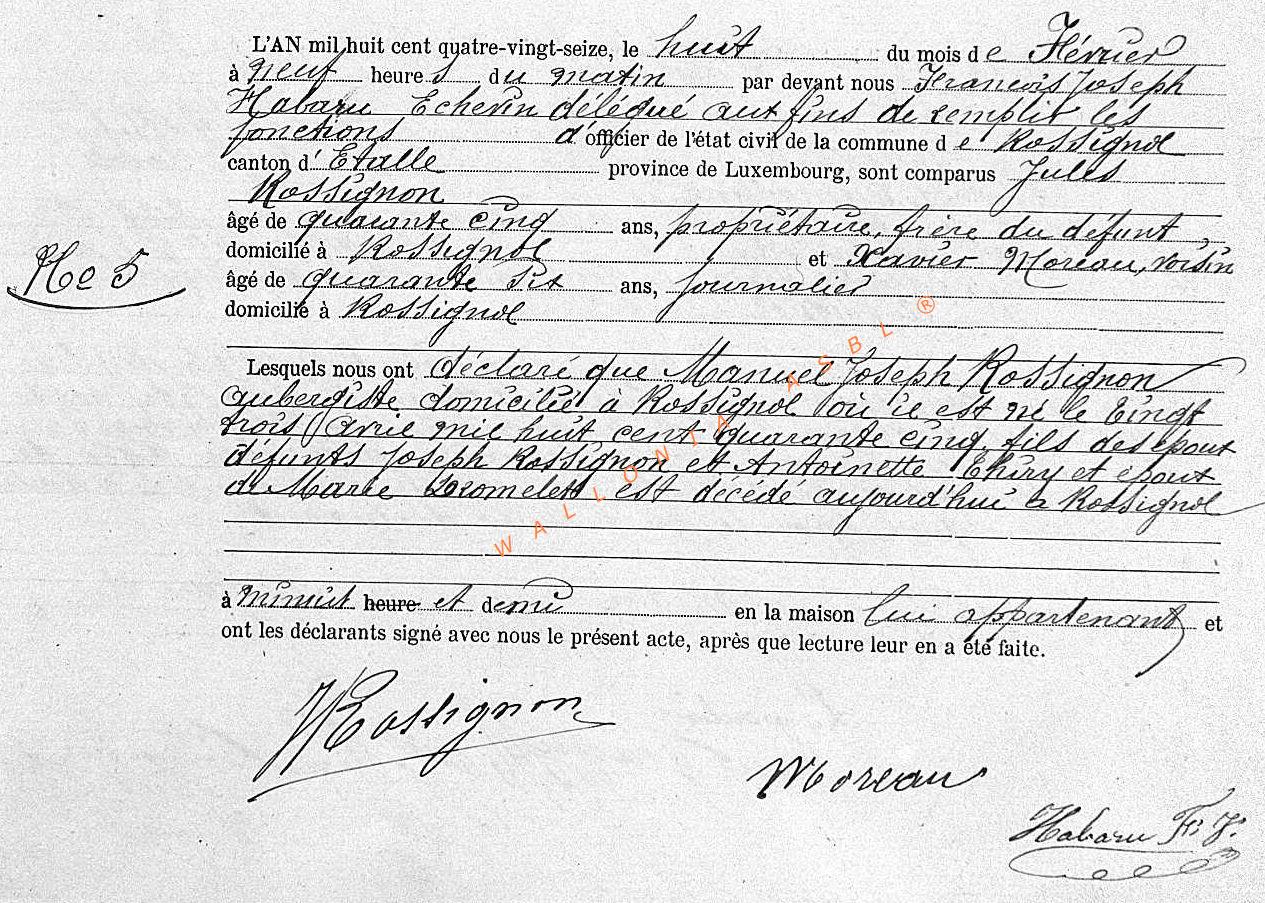 L'AN mil huit cent quatre-vingt-seize, le huit du mois de Février
à neuf heures du matin par devant nous François Joseph
Habaru Echevin délégué aux fins de remplir les
fonctions d'officier de l'état civil de la commune de Rossignol
canton d'Etalle province de Luxembourg, sont comparus Jules
Rossignon
âgé de quarante cinq ans, propriétaire, frère du défunt,
domicilié à Rossignol et Xavier Moreau, voisin
No 5
âgé de quarante six ans, journalier
domicilié à Rossignol
Lesquels nous ont déclaré que Manuel Joseph Rossignon
aubergiste domicilié à Rossignol où il est né le vingt
trois Avril mil huit cent quarante cinq, fils des époux
défunts Joseph Rossignon et Antoinette Thiry et époux
de Marie est décédé aujourd'hui à Rossignol
à minuit heure et demi en la maison lui appartenant et
ont les déclarants signé avec nous le présent acte, après que lecture leur en a été faite.
JRossignon
Moreau
Habaru F. J.
WALLONIA ASBL ®